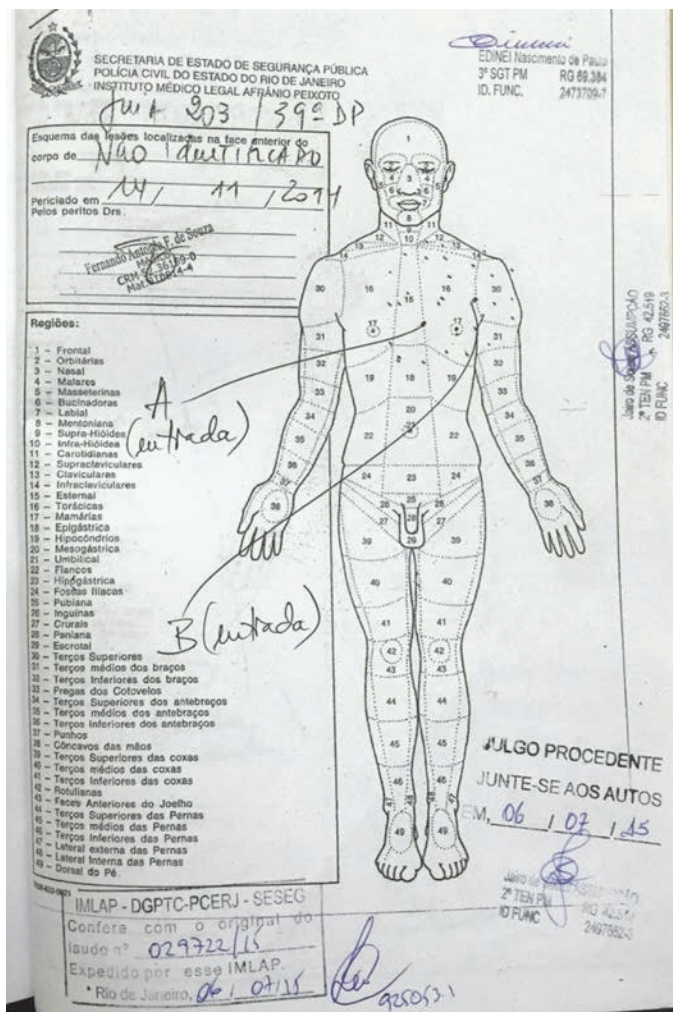 SECRETARIA DE ESTADO DE SEGURANÇA PÚBLICA
POLÍCIA CIVIL DO ESTADO DO RIO DE JANEIRO
INSTITUTO MÉDICO LEGAL AFRÂNIO PEIXOTO
EDINEI Nascimento de Paula
3º SGT PM RG 69.384
ID. FUNC. 2473709-7
203 / 39ª DP
Esquema das lesões localizadas na face anterior do
corpo de NÃO IDENTIFICADO
Periciado em 14 / 11 / 2014
Pelos peritos Drs.
Fernando Antonio F. de Souza
Regiões:
1 – Frontal
2 – Orbitárias
3 – Nasal
4 – Malares
5 – Masseterinas
6 – Bucinadoras
7 – Labial
8 – Mentoniana
9 – Supra-Hióides
10 – Infra-Hióides
11 – Carotidianas
12 – Supraclaviculares
13 – Claviculares
14 – Infraclaviculares
15 – Esternal
16 – Torácicas
17 – Mamárias
18 – Epigástrica
19 – Hipocôndrios
20 – Mesogástrica
21 – Umbilical
22 – Flancos
23 – Hipogástrica
24 – Fossas Ilíacas
25 – Pubiana
26 – Inguinas
27 – Crurais
28 – Peniana
29 – Escrotal
30 – Terços Superiores
31 – Terços médios dos braços
32 – Terços Inferiores dos braços
33 – Pregas dos Cotovelos
34 – Terços Superiores dos antebraços
35 – Terços médios dos antebraços
36 – Terços Inferiores dos antebraços
37 – Punhos
38 – Côncavos das mãos
39 – Terços Superiores das coxas
40 – Terços médios das coxas
41 – Terços Inferiores das coxas
42 – Rotulianas
43 – Faces Anteriores do Joelho
44 – Terços Superiores das Pernas
45 – Terços médios das Pernas
46 – Terços Inferiores das Pernas
47 – Lateral externa das Pernas
48 – Lateral Interna das Pernas
49 – Dorsal do Pé
A
(entrada)
B (entrada)
Jairo de Souza ASSUMPÇÃO
2º TEN PM RG 42.519
ID FUNC 2497862-3
JULGO PROCEDENTE
JUNTE-SE AOS AUTOS
EM, 06 / 07 / 15
2º TEN PM
ID FUNC 2497862-3
IMLAP - DGPTC-PCERJ - SESEG
Confere com o original do
laudo nº 029722/15
Expedido por esse IMLAP.
Rio de Janeiro, 06 / 07/15
925053.1